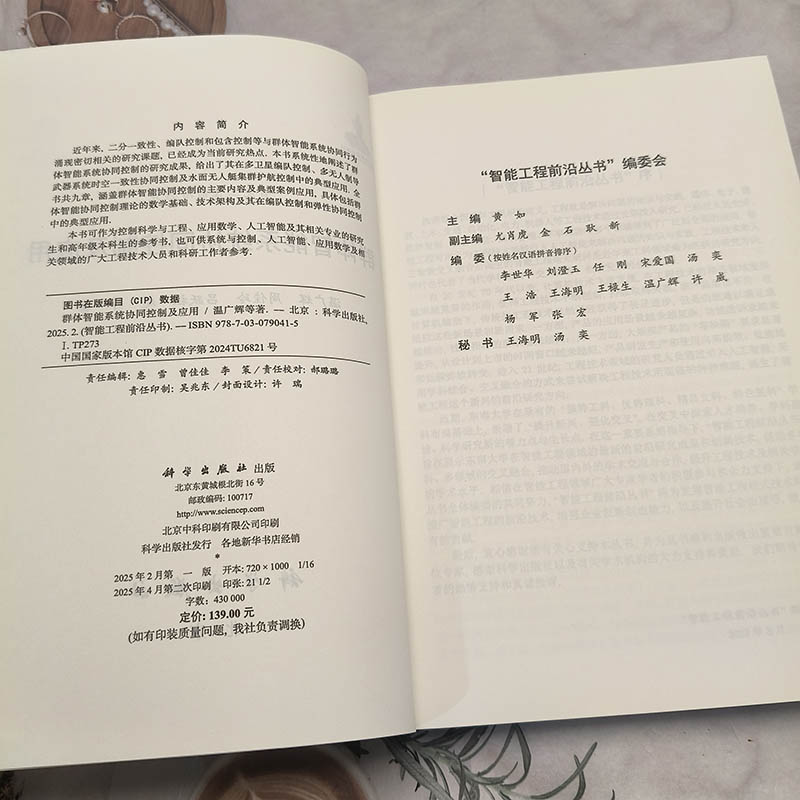 内 容 简 介
近年来，二分一致性、编队控制和包含控制等与群体智能系统协同行为
涌现密切相关的研究课题，已经成为当前研究热点。本书系统性地阐述了群
体智能系统协同控制的研究成果，给出了其在多卫星编队控制、多无人制导
武器系统时空一致性协同控制及水面无人艇集群护航控制中的典型应用。全
书共九章，涵盖群体智能协同控制的主要内容及典型案例应用，具体包括群
体智能协同控制理论的数学基础、技术架构及其在编队控制和弹性协同控制
中的典型应用。
本书可作为控制科学与工程、应用数学、人工智能及其相关专业的研究
生和高年级本科生的参考书，也可供系统与控制、人工智能、应用数学及相
关领域的广大工程技术人员和科研工作者参考。
图书在版编目（CIP）数据
群体智能系统协同控制及应用 / 温广辉等著. — 北京：科学出版社，
2025. 2. (智能工程前沿丛书). — ISBN 978-7-03-079041-5
Ⅰ. TP273
中国国家版本馆 CIP 数据核字第 2024TU6821 号
责任编辑：惠 雪 曾佳佳 李 策 / 责任校对：郝璐璐
责任印制：吴兆东 / 封面设计：许 瑞
科学出版社 出版
北京东黄城根北街 16 号
邮政编码：100717
http://www.sciencep.com
北京中科印刷有限公司印刷
科学出版社发行 各地新华书店经销
*
2025 年 2 月第 一 版 开本：720 × 1000 1/16
2025 年 4 月第二次印刷 印张：21 1/2
字数：430 000
定价：139.00 元
(如有印装质量问题，我社负责调换)
“智能工程前沿丛书”编委会
主 编 黄 如
副主编 尤肖虎 金 石 耿 新
编 委 (按姓名汉语拼音排序)
李世华 刘澄玉 任 刚 宋爱国 汤 奕
王 浩 王海明 王禄生 温广辉 许 威
杨 军 张 宏
秘 书 王海明 汤 奕